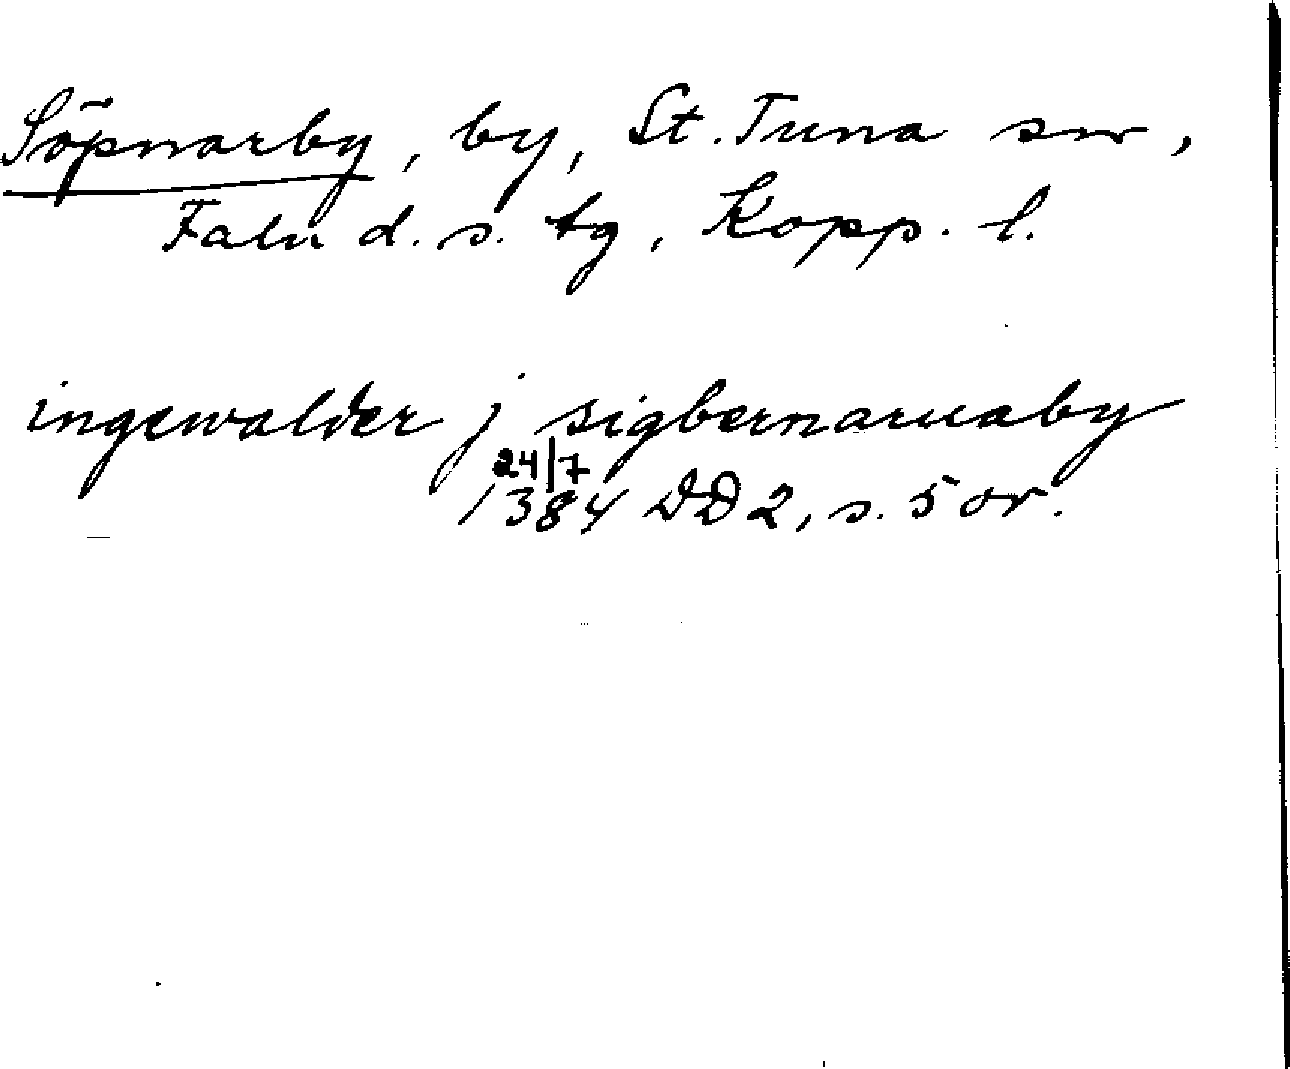 Söpnarby, by, St. Tuna sn,
Falu d. s. tg, Kopp. l.
ingewalder j sigbernaruaby
24/7
1384 DD 2, s. 5 or.